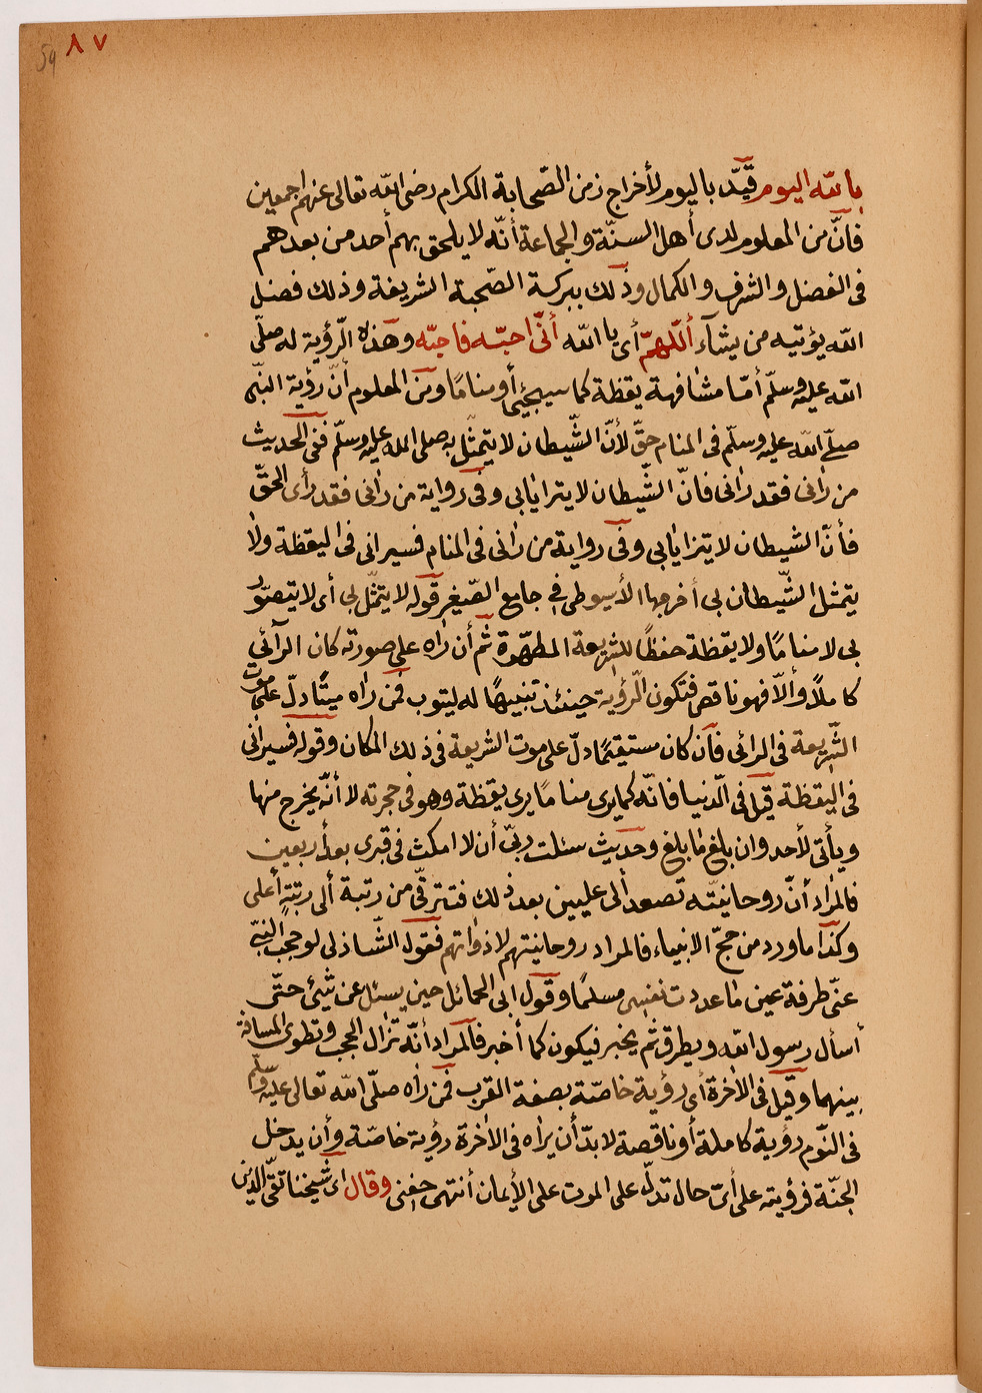 ٨٧
59
بالله اليوم قيّد باليوم لأخراج زمن الصّحابة الكرام رضى الله تعالى عنهم اجمعين
فانّ من المعلوم لدى أهل السنّة والجماعة أنّه لا يلحق بهم أحد من بعدهم
فى الفضل والشرف والكمال وذلك ببركة الصّحبة الشريفة وذلك فضل
الله يؤتيه من يشآء أللّهمّ أى يا الله أنّى احبّه فاحبّه وهذه الرّؤية له صلّى
الله عليه وسلّم أمّا مشافهة يقظة كما سيجئى أو منامًا ومن المعلوم أنّ رؤية النبّى
صلّى الله عليه وسلّم فى المنام حقّ لأنّ الشّيطان لا يتمثّل به صلى الله عليه وسلّم ففى الحديث
من رانى فقد رانى فانّ الشّيطان لا يترايابى وفى رواية من رانى فقد رأى الحقّ
فأنّ الشيطان لا يتزايابى وفى رواية من رانى فى المنام فسيرانى فى اليقظة ولا
يتمثل الشّيطان بى أخرجها الأسيوطى فى جامع الصّغير قوله لا يتمّثل بى أى لا يتصوّر
بى لا منامًا ولا يقظة حفظًا للشريعة المطهّرة ثم أن راه على صورته كان الرآئى
كاملًا وألّا فهو ناقص فتكون الرّؤية حينئذ تنبيهًا له ليتوب فمن راه ميتًا دلّ على موت
الشّريعة فى الرائى فأن كان مستقيمًا دلّ على موت الشريعة فى ذلك المكان وقوله فسيرانى
فى اليقظة قيل فى الدّنيا فانّه كما يرى منامًا يرى يقظة وهو فى حجرته لا أنّه يخرج منها
ويأتى لأحد وان بلغ ما بلغ وحديث سئلت ربّى أن لا امكث فى قبرى بعد أربعين
فالمراد أنّ روحانيتّه تصعد ألى عليين بعد ذلك فتترقّى من رتبة ألى رتبة أعلى
وكذا ما ورد من حجّ الانبياء فالمراد روحانيتهم لا ذواتهم فقوله الشّاذلى لو حجب النبّى
عنّى طرفة عين ما عددت نفسى مسلمًا وقول ابى الحمائل حين يسئل عن شيئ حتّى
أسأل رسول الله ويطرق ثم يخبر فيكون كما أخبر فالمراد أنّه تزال الحجب وتطوى المسافة
بينهما وقيل فى الأخرة أى رؤية خاصّة بصفة القرب فمن راه صلّى الله تعالى عليه وسلّم
فى النّوم رؤية كاملة أو ناقصة لا بدّ أن يراه فى الأخرة رؤية خاصّة وأن يدخل
الجنّة فرؤيته على أىّ حال تدلّ على الموت على الأيمان أنتهى حفنى وقال اى شيخنا تقىّ الدّين